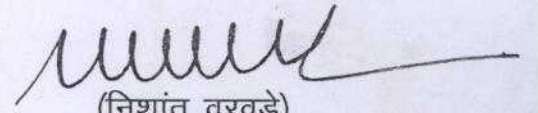 (निशांत वरवड़े)